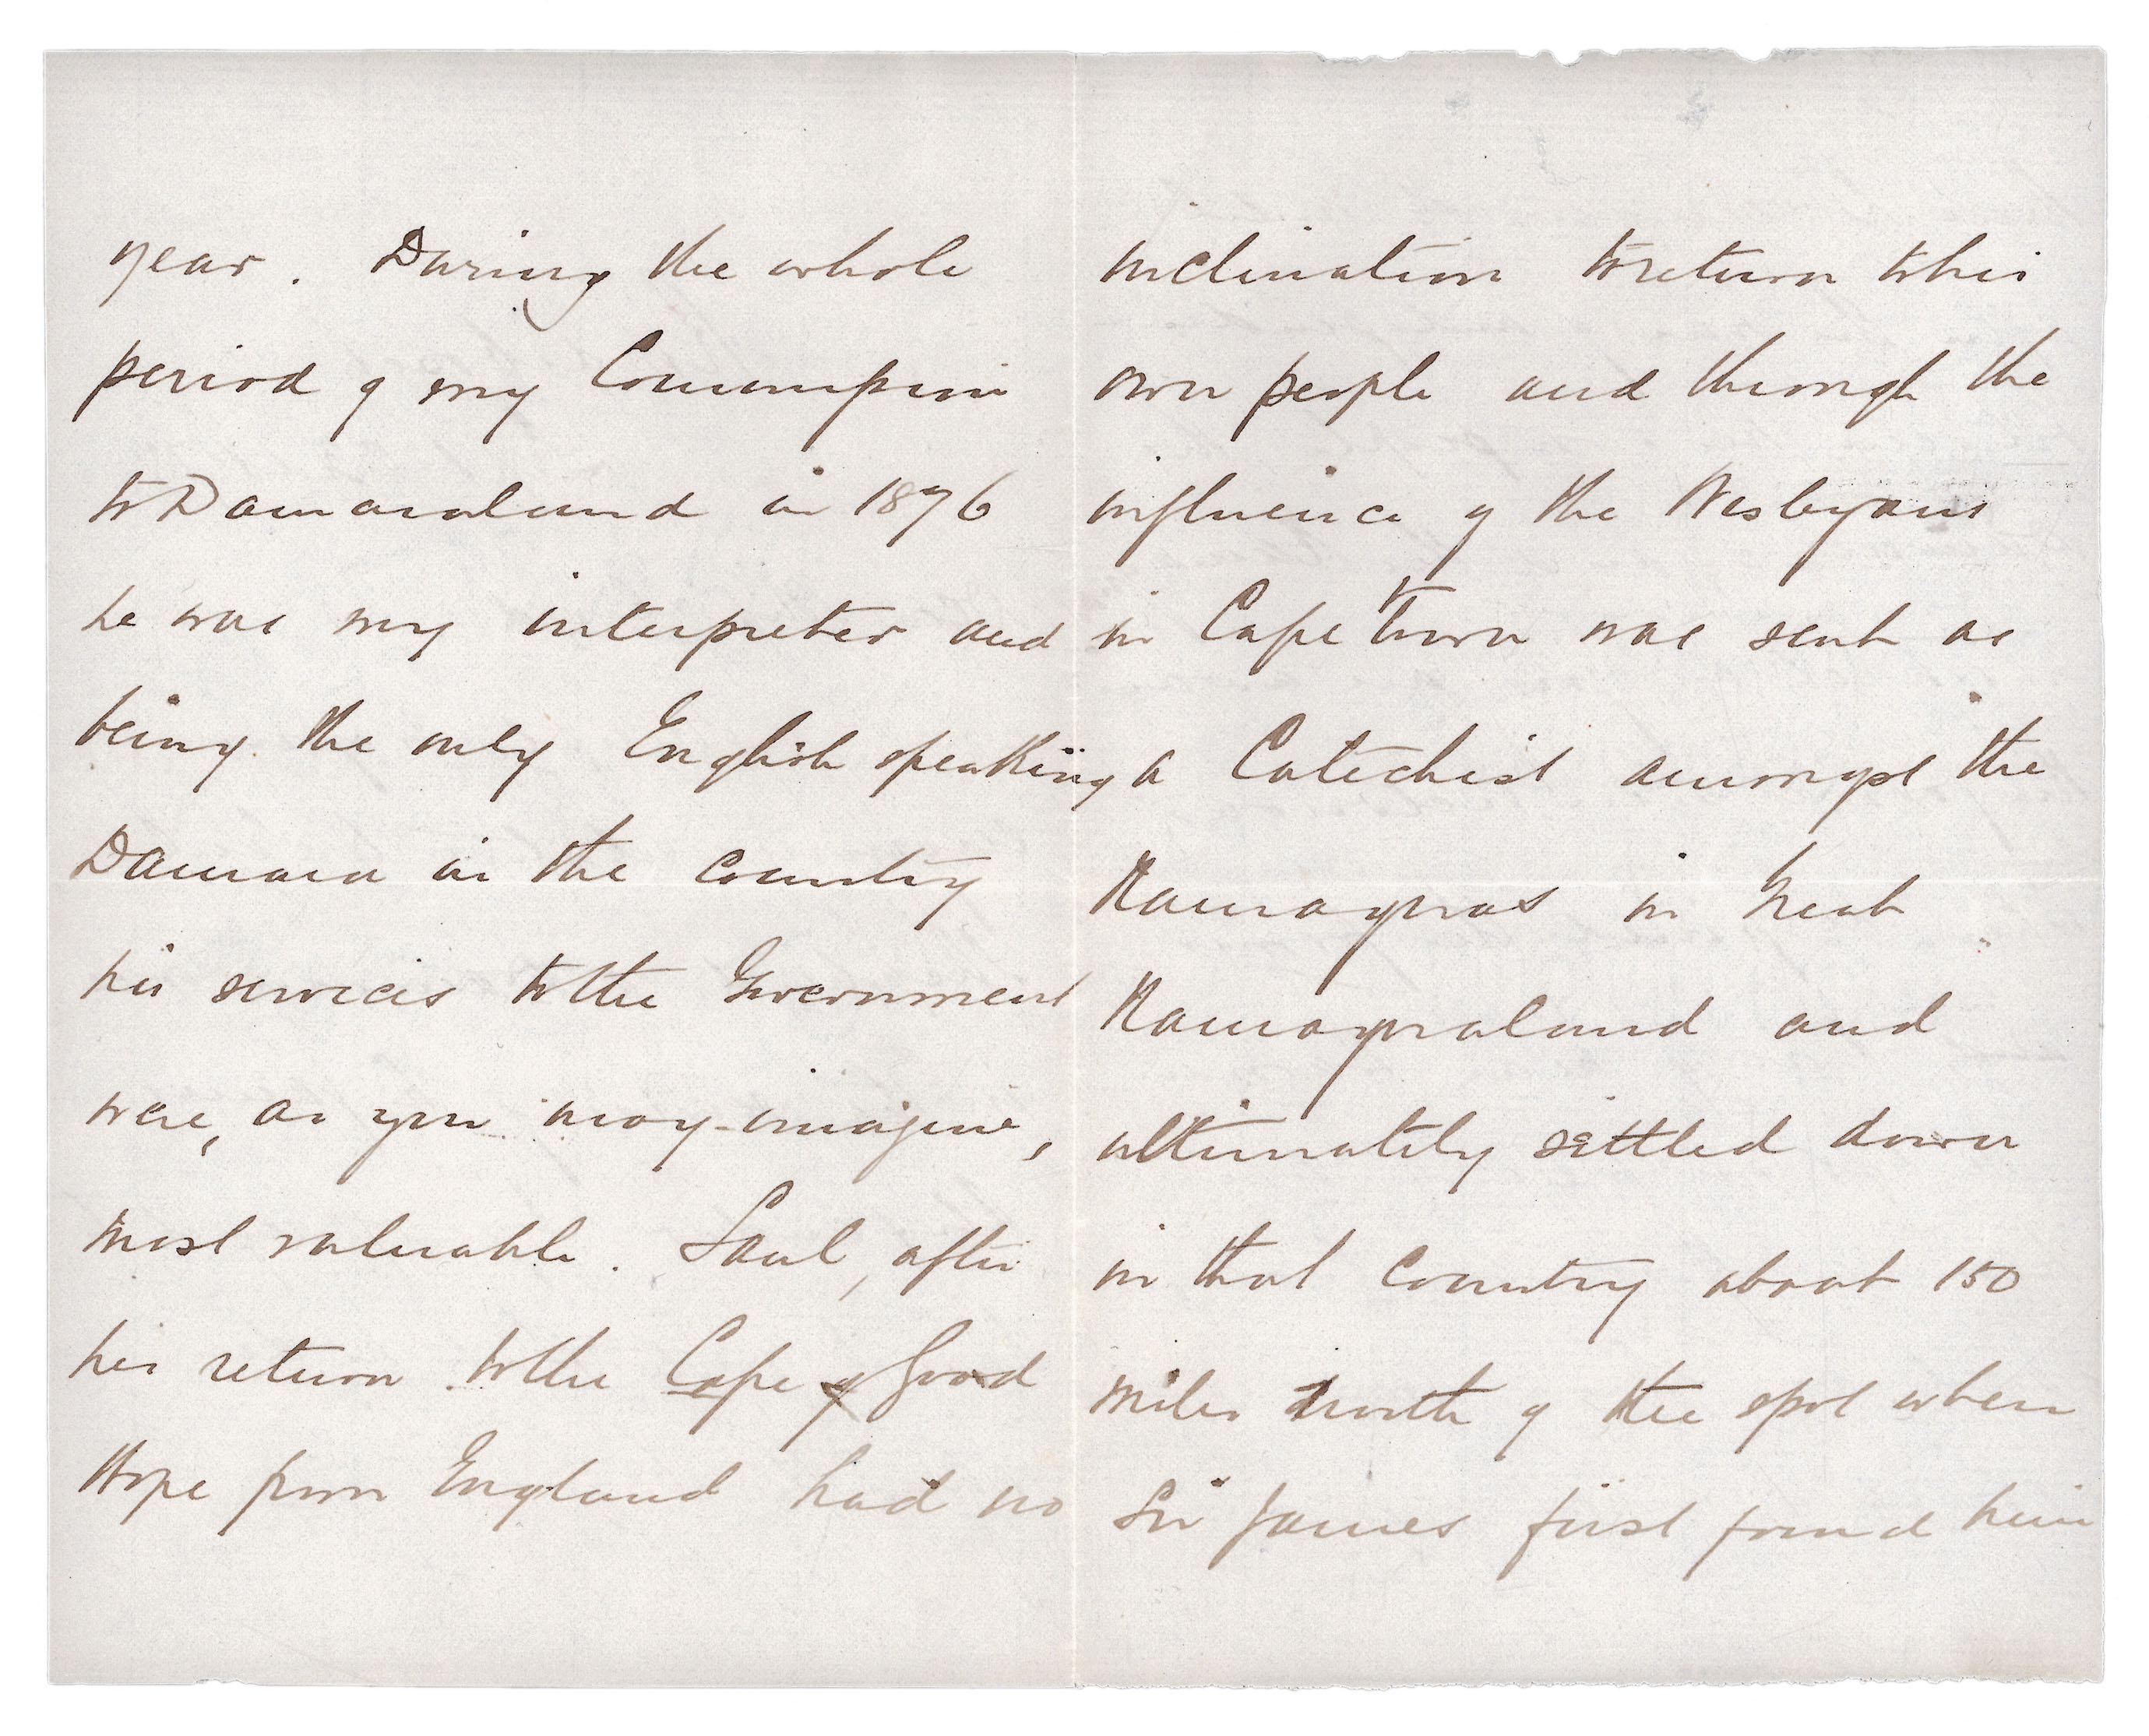 year. During the whole
period of my Commission
to Damaraland in 1876
he was my interpreter and
being the only English speaking
Damara in the country
his services to the Government
were, as you may imagine,
most valuable. Saul, after
his return to the Cape of Good
Hope from England had no
inclination to return to his
own people and through the
influence of the Wesleyans
in Cape Town was sent as
a Catechist amongst the
Namaquas in Great
Namaqualand and
ultimately settled down
in that Country about 150
miles north of the spot where
Sir James first found him